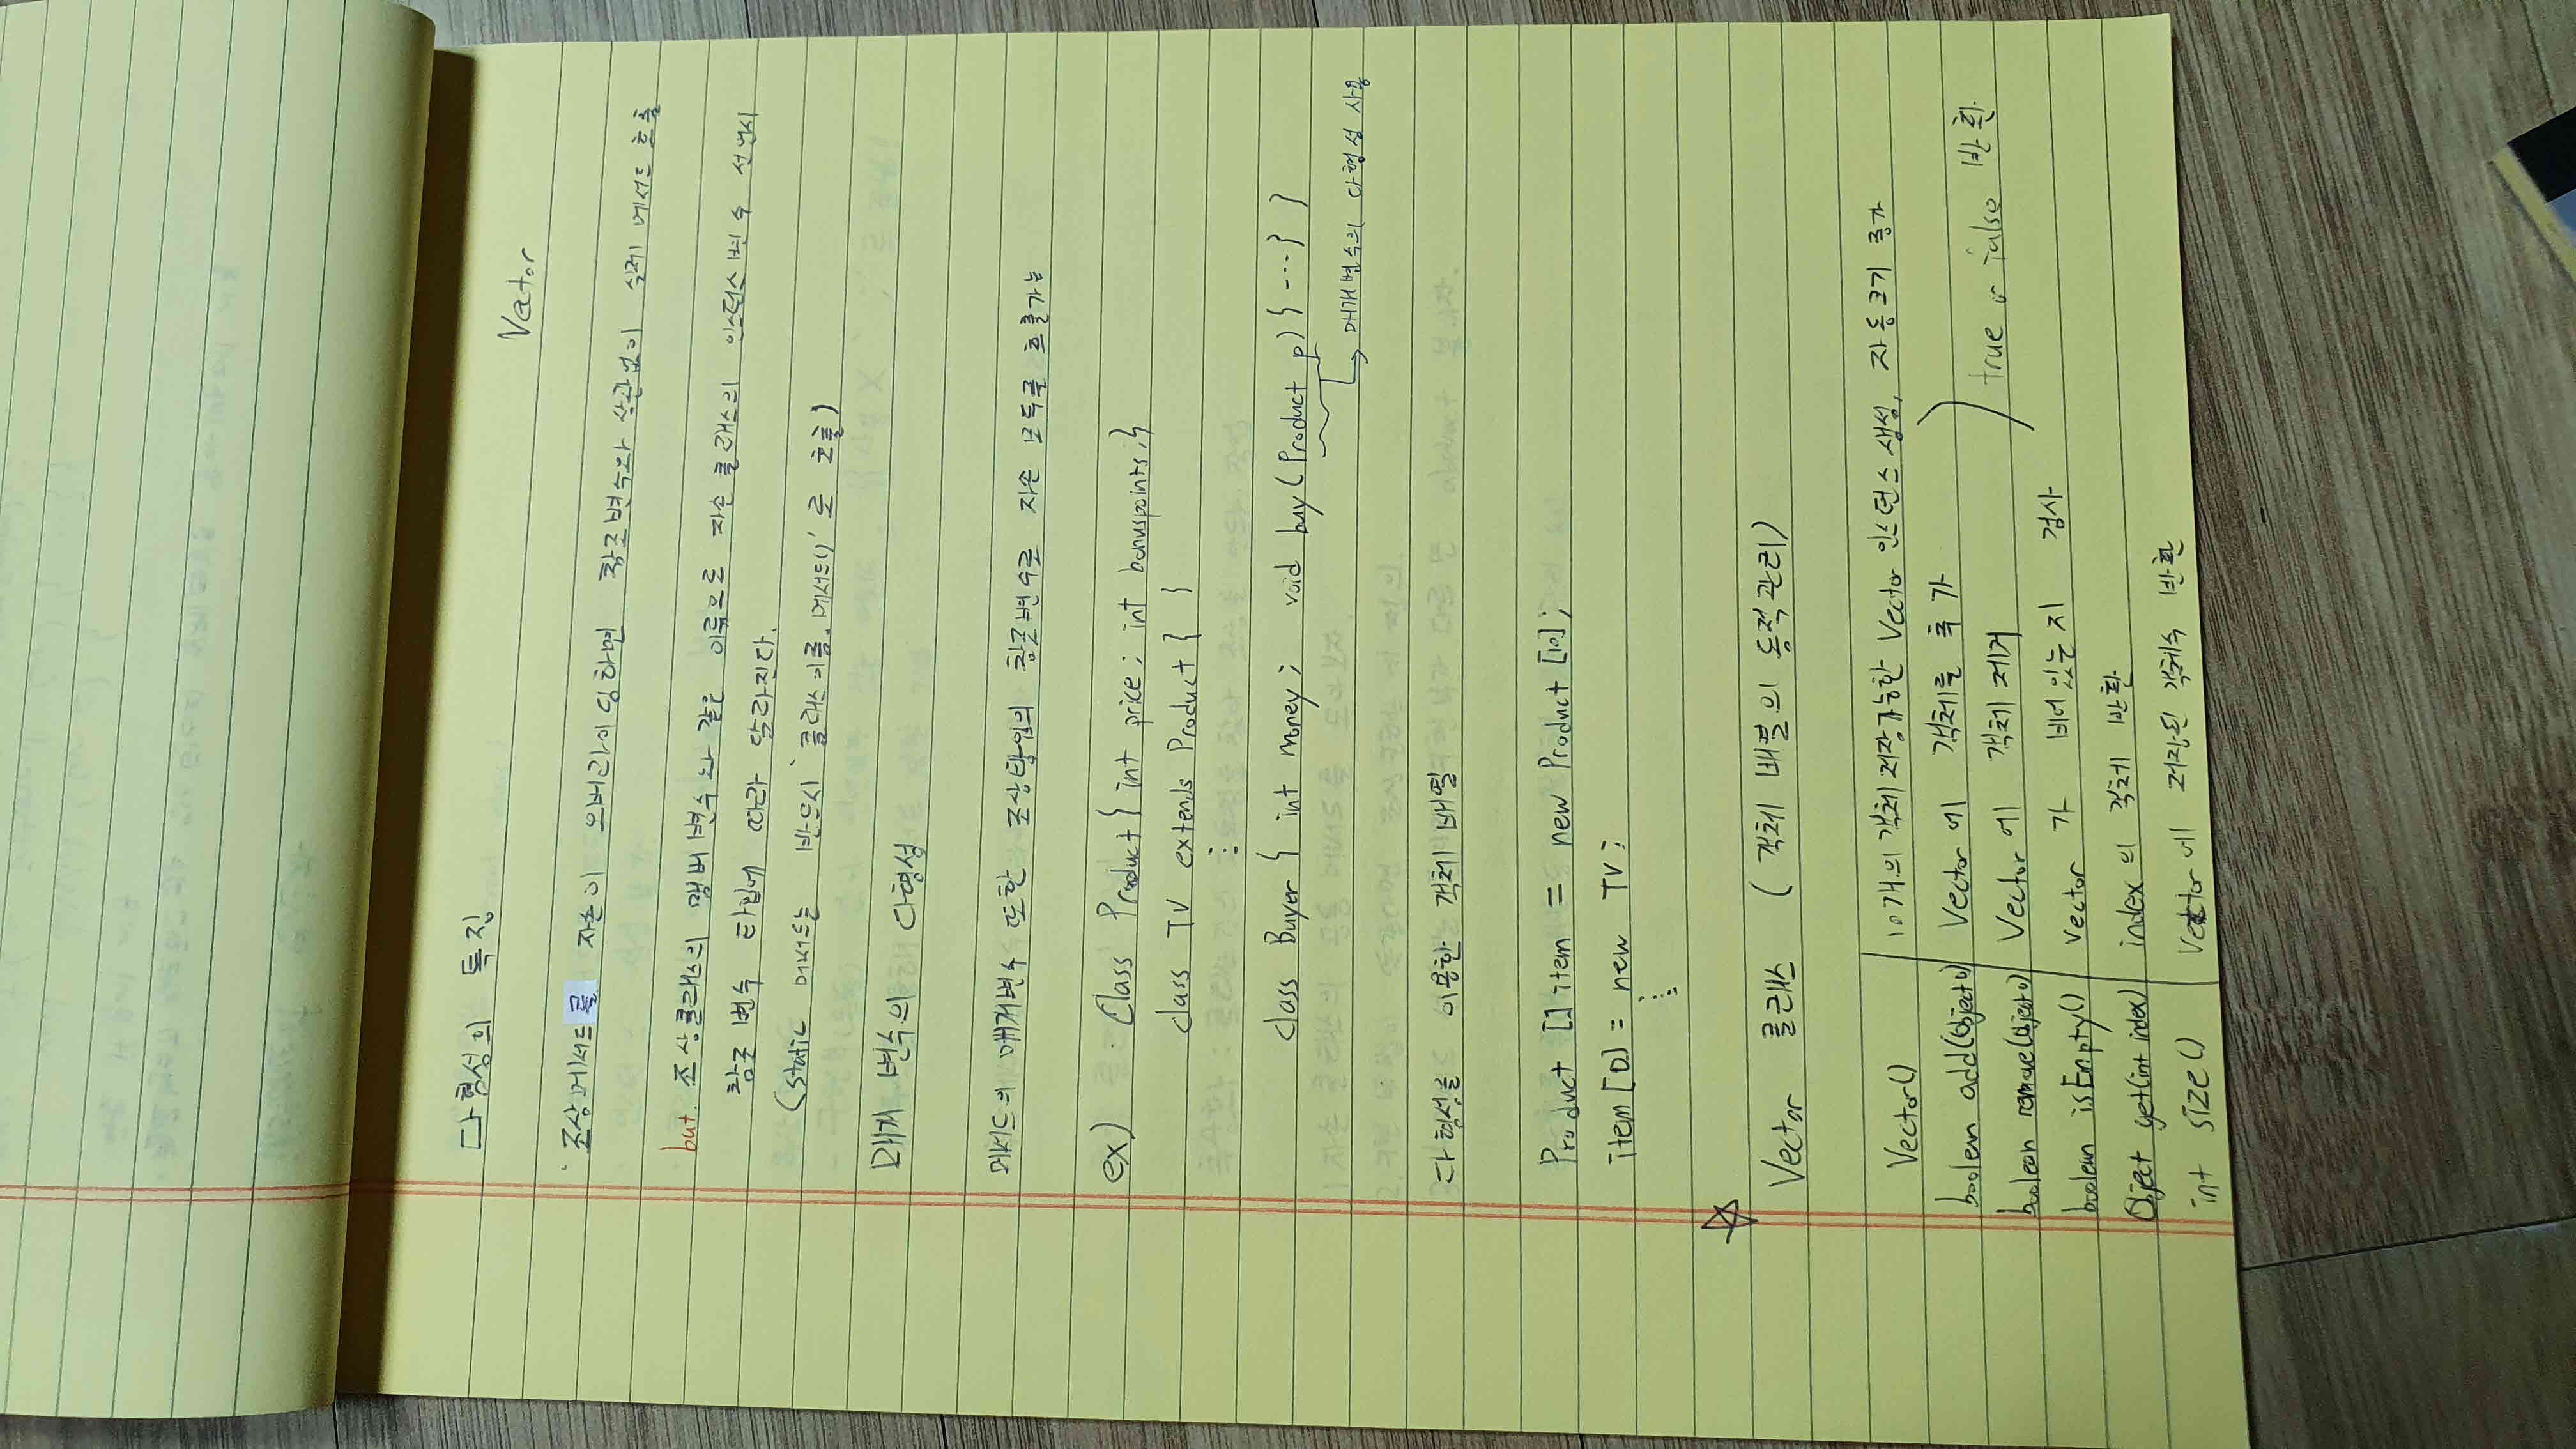 다형성의 특징
Vector
· 조상메서드를 자손이 오버라이딩하면 참조변수와 상관없이 실제 메서드 호출
but. 조상클래스의 멤버변수와 같은 이름으로 자손클래스의 인스턴스변수 선언시
참조변수 타입에 따라 달라진다.
(static 메서드는 반드시 '클래스이름.메서드()'로 호출)
매개변수의 다형성
메서드의 매개변수 또한 조상타입의 참조변수로 자손 모두를 호출가능
ex) · Class Product { int price; int bonuspoints;}
class TV extends Product { }
⋮
class Buyer { int money; void buy(Product p) { ---} }
→ 매개변수의 다형성 사용
다형성을 이용한 객체 배열
Product [] item = new Product [10];
item [0] = new TV;
⋮
Vector 클래스 (객체 배열의 동적관리)
Vector() 10개의 객체 저장가능한 Vector 인스턴스 생성, 자동크기 증가
boolean add(Object o) Vector에 객체를 추가
boolean remove(Object o) Vector에 객체 제거
true or false 반환
boolean isEmpty() vector가 비어있는지 검사
Object get(int index) index의 객체 반환
int size() Vector에 저장된 객체수 반환